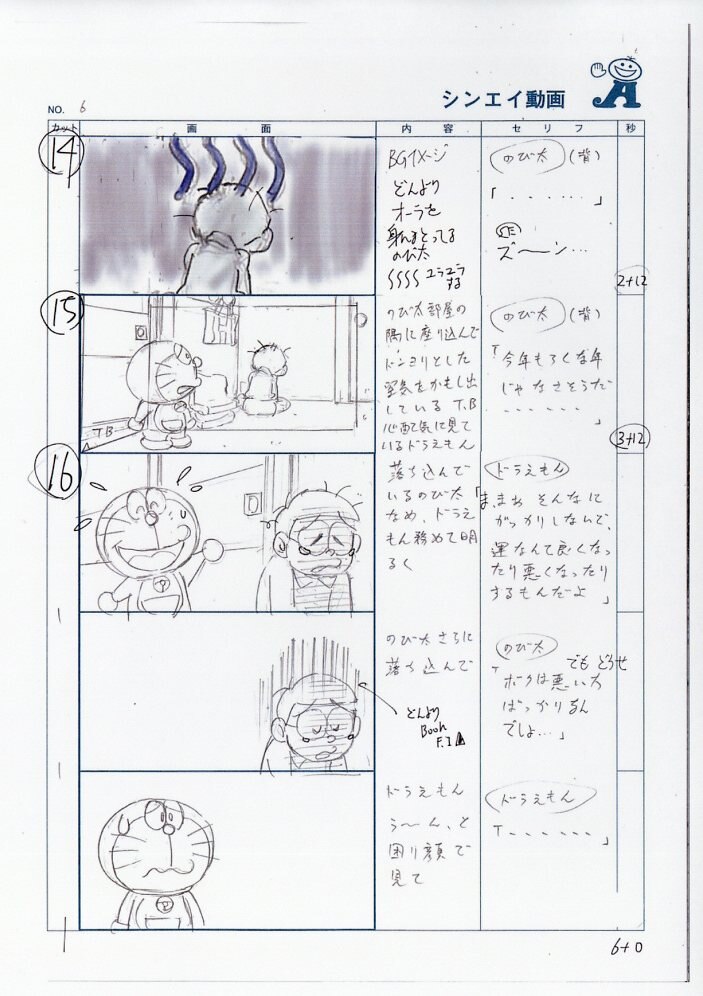 NO. 6
シンエイ動画
カット 画面 内容 セリフ 秒
14
BGイメージ
どんより
オーラを
身にまとってる
のび太
ユラユラ
する
のび太(背)
「......」
ズ〜〜ン…
2+12
15
のび太部屋の
隅に座り込んで
ドンヨリとした
空気をかもし出
している T.B
心配気に見て
いるドラえもん
T.B
のび太(背)
「今年もろくな年
じゃなさそうだ
......」
3+12
16
落ち込んで
いるのび太
なめ、ドラえ
もん務めて明
るく
ドラえもん
「ま、まぁ そんなに
がっかりしないで、
運なんて良くなっ
たり悪くなったり
するもんだよ」
のび太さらに
落ち込んで
どんより
Book
F.I
のび太
「でも どうせ
ボクは悪い方
ばっかりなん
でしょ…」
ドラえもん
う〜〜ん、と
困り顔で
見て
ドラえもん
「......」
6+0